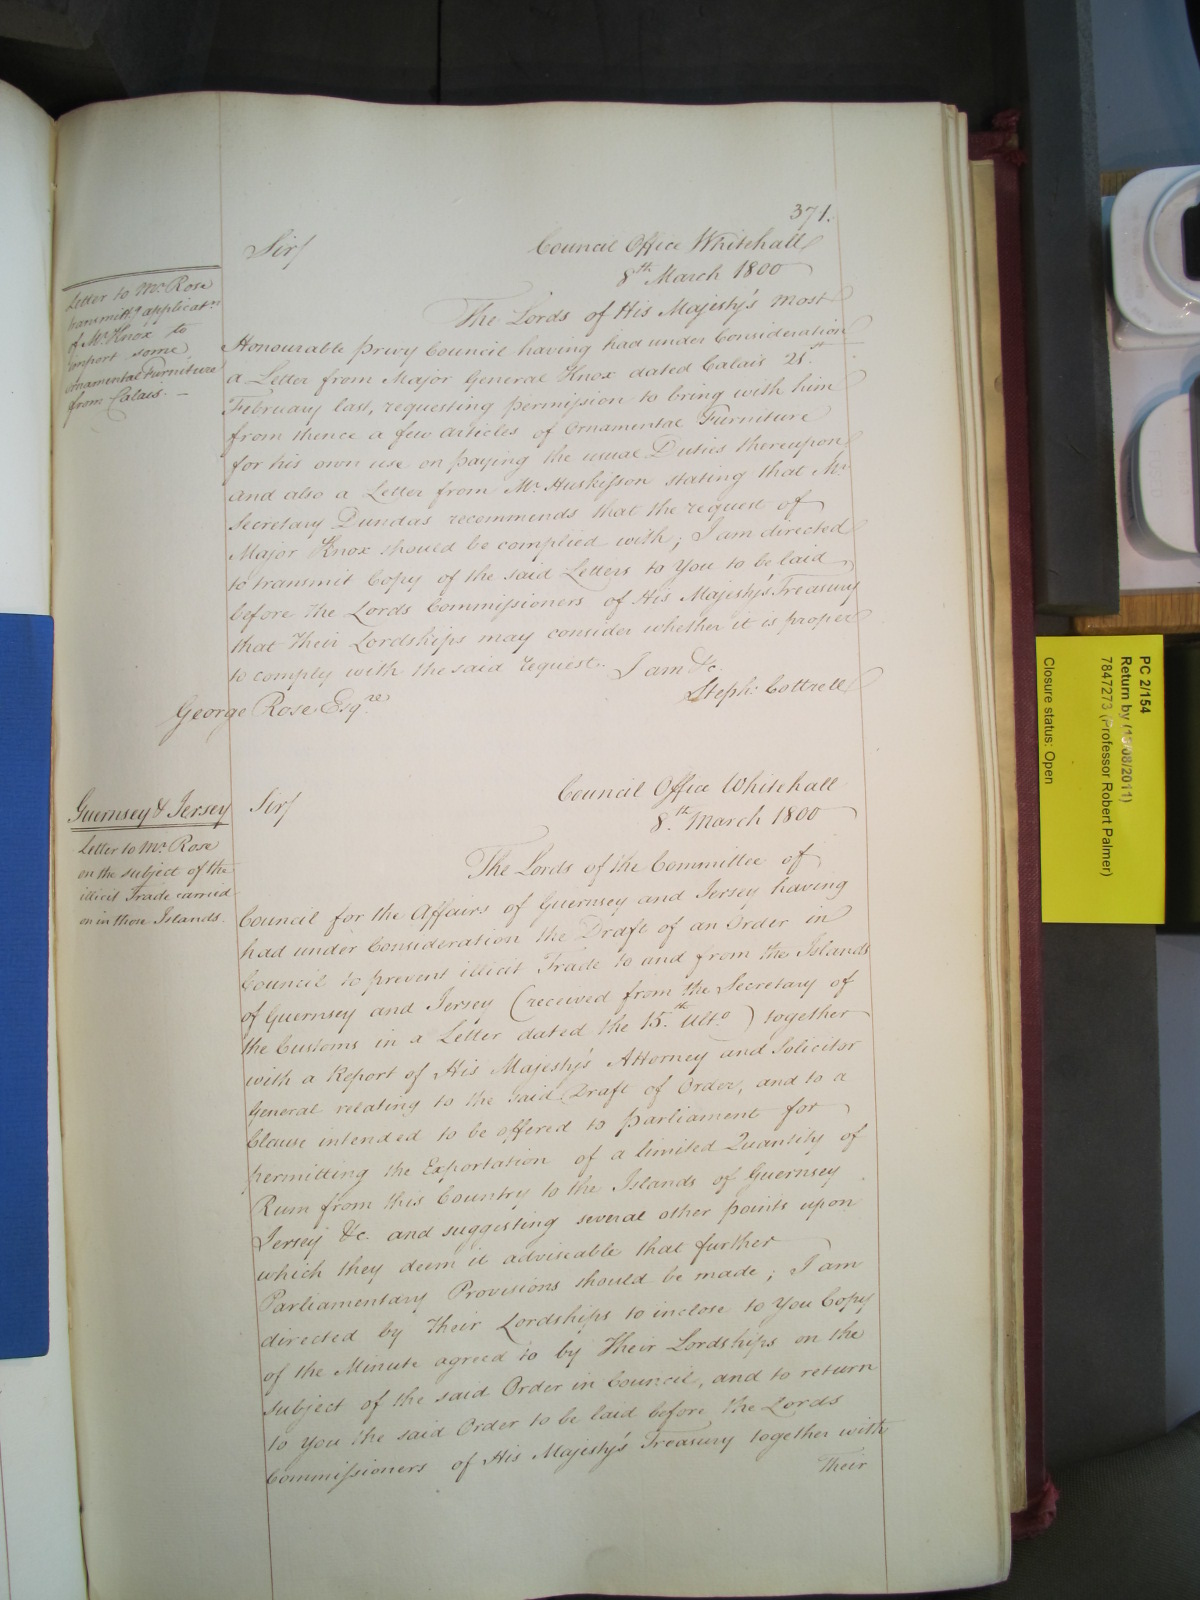 371.
Sir/
Council Office Whitehall
8th March 1800
Letter to Mr. Rose
transmittg. applicatn.
of Mr. Knox to
import some
Ornamental Furniture
from Calais. —
The Lords of His Majesty's most
Honourable privy Council having had under Consideration
a Letter from Major General Knox dated Calais 21st
February last, requesting permission to bring with him
from thence a few articles of Ornamental Furniture
for his own use on paying the usual Duties thereupon
and also a Letter from Mr. Huskisson stating that Mr.
Secretary Dundas recommends that the request of
Major Knox should be complied with; I am directed
to transmit Copy of the said Letters to You to be laid
before the Lords Commissioners of His Majesty's Treasury
that Their Lordships may consider whether it is proper
to comply with the said request. I am &c.
Steph: Cottrell
George Rose Esqre.
Guernsey & Jersey
Letter to Mr. Rose
on the subject of the
illicit Trade carried
on in those Islands.
Sir/
Council Office Whitehall
8.th March 1800
The Lords of the Committee of
Council for the Affairs of Guernsey and Jersey having
had under Consideration the Draft of an Order in
Council to prevent illicit Trade to and from the Islands
of Guernsey and Jersey (received from the Secretary of
the Customs in a Letter dated the 15.th Ulto.) together
with a Report of His Majesty's Attorney and Solicitor
General relating to the said Draft of Order, and to a
Clause intended to be offered to Parliament for
permitting the Exportation of a limited Quantity of
Rum from this Country to the Islands of Guernsey
Jersey &c. and suggesting several other points upon
which they deem it adviseable that further
Parliamentary Provisions should be made; I am
directed by Their Lordships to inclose to You Copy
of the Minute agreed to by Their Lordships on the
subject of the said Order in Council, and to return
to You the said Order to be laid before the Lords
Commissioners of His Majesty's Treasury together with
Their
PC 2/154
Return by (13/08/2011)
7847273 (Professor Robert Palmer)
Closure status: Open